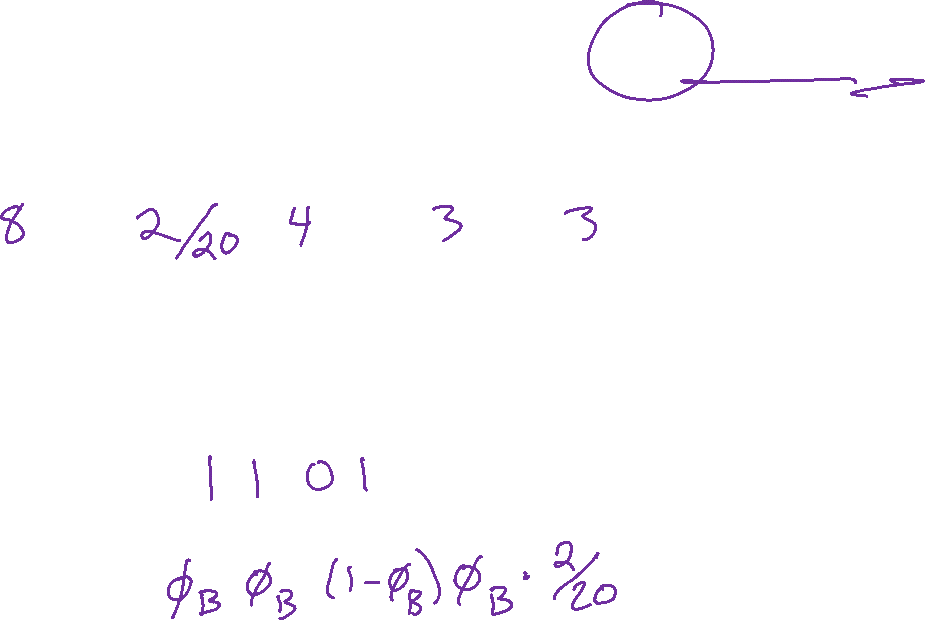 8 2/20 4 3 3
1 1 0 1
ϕ_B ϕ_B (1-ϕ_B) ϕ_B · 2/20